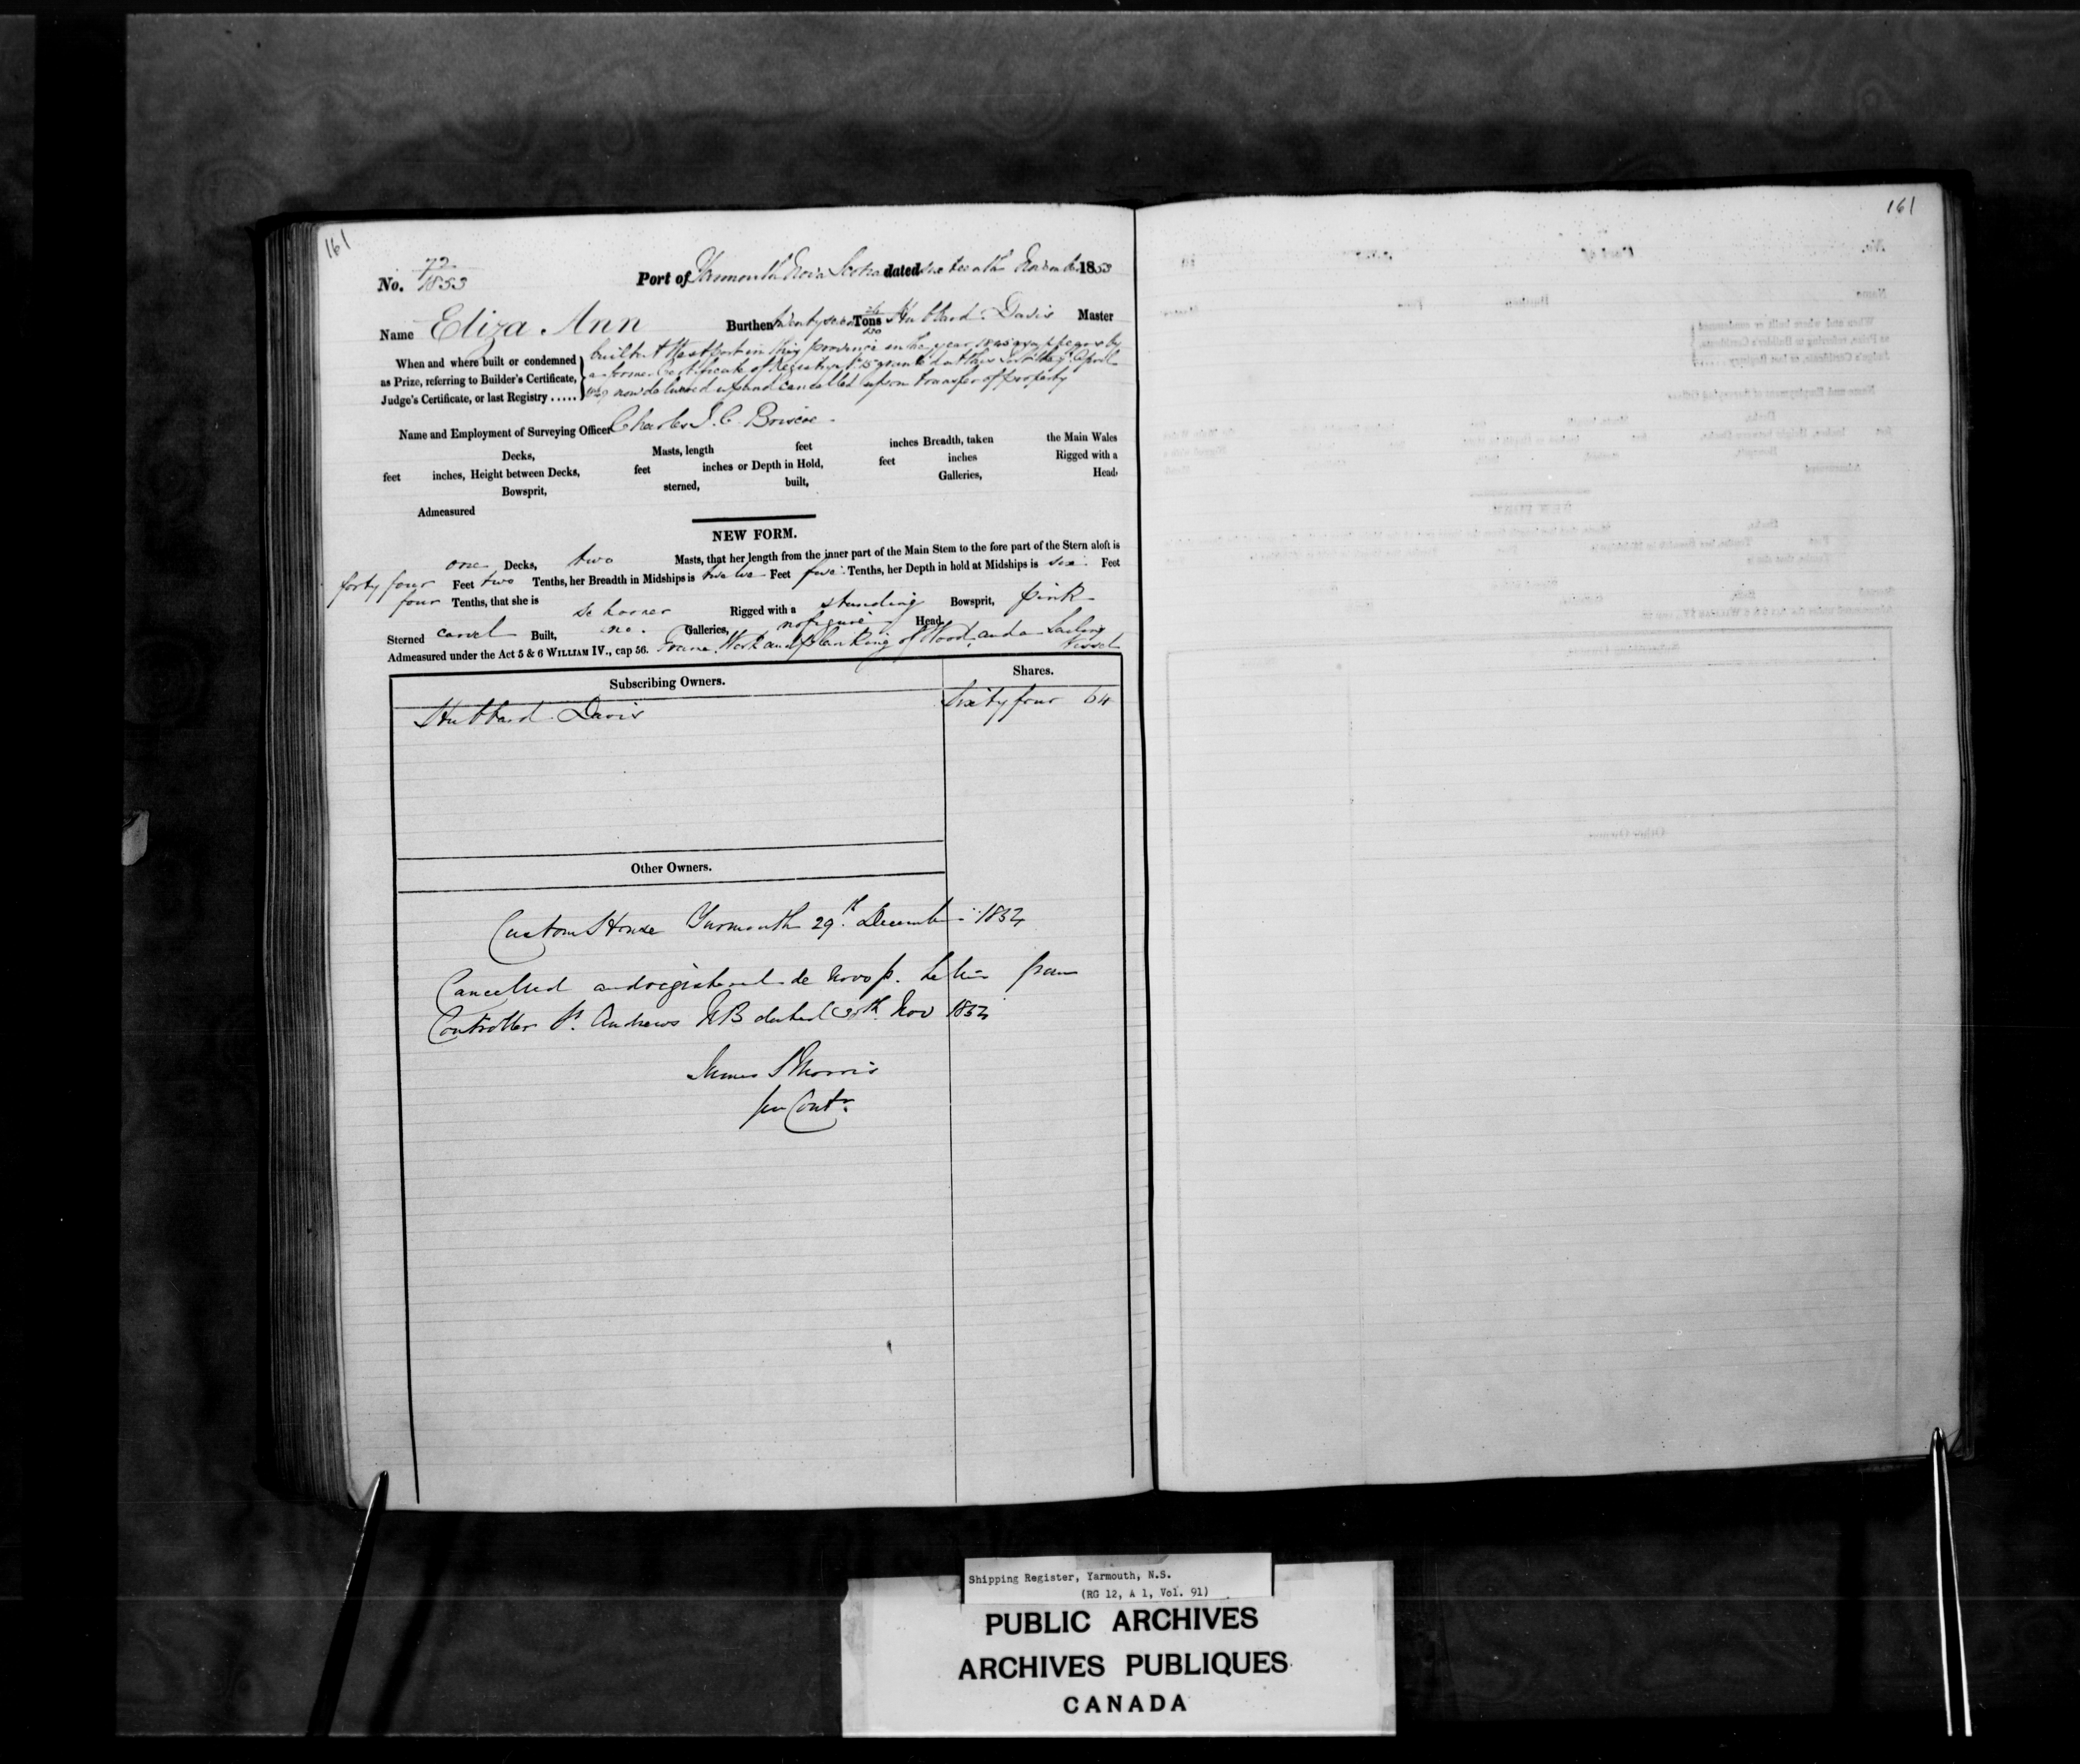 161
161
No. 72/1853 Port of Yarmouth Nova Scotia dated sixteenth November 1853
Name Eliza Ann Burthen twenty seven Tons Hubbard Davis Master
When and where built or condemned as Prize, referring to Builder's Certificate, Judge's Certificate, or last Registry .....
built at Westport in this province in the year 1845 as appears by
a former Certificate of Registry granted at this Port April
now delivered up and cancelled upon transfer of property
Name and Employment of Surveying Officer Charles J. C. Briscoe
Decks, Masts, length feet inches Breadth, taken the Main Wales
feet inches, Height between Decks, feet inches or Depth in Hold, feet inches Rigged with a
Bowsprit, sterned, built, Galleries, Head,
Admeasured
NEW FORM.
one Decks, two Masts, that her length from the inner part of the Main Stem to the fore part of the Stern aloft is
forty four Feet two Tenths, her Breadth in Midships is twelve Feet five Tenths, her Depth in hold at Midships is six Feet
four Tenths, that she is Schooner Rigged with a standing Bowsprit, pink
Sterned carvel Built, no Galleries, no figure Head,
Admeasured under the Act 5 & 6 WILLIAM IV., cap 56. Frame Work and planking of Wood, and a Sailing
Vessel
Subscribing Owners. Shares.
Hubbard Davis Sixty four 64
Other Owners.
Custom House Yarmouth 29th December 1854
Cancelled and registered de Novo p. Letter from
Controller St. Andrews NB dated 30th Nov 1854
James S Morris
for Contr.
Shipping Register, Yarmouth, N.S.
(RG 12, A 1, Vol. 91)
PUBLIC ARCHIVES
ARCHIVES PUBLIQUES
CANADA